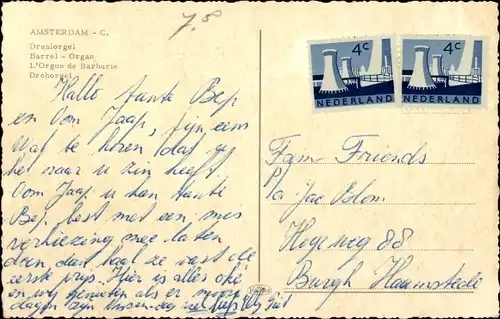 7.8
AMSTERDAM - C.
Draaiorgel
Barrel - Organ
L'Orgue de Barbarie
Drehorgel
Hallo tante Bep
en Oom Jaap, fijn eens
Wat te horen dat U
het naar U zin heeft.
Oom Jaap U kan tante
Bep best met een mis
verkiezing mee laten
doen, dan haal ze vast de
eerste prijs. Hier is alles oké
en wij genieten als er mooie
dagen zijn
4c
NEDERLAND
4c
NEDERLAND
Fam Friends
p/a Jac Blom
Hogeweg 88
Burgh Haamstede